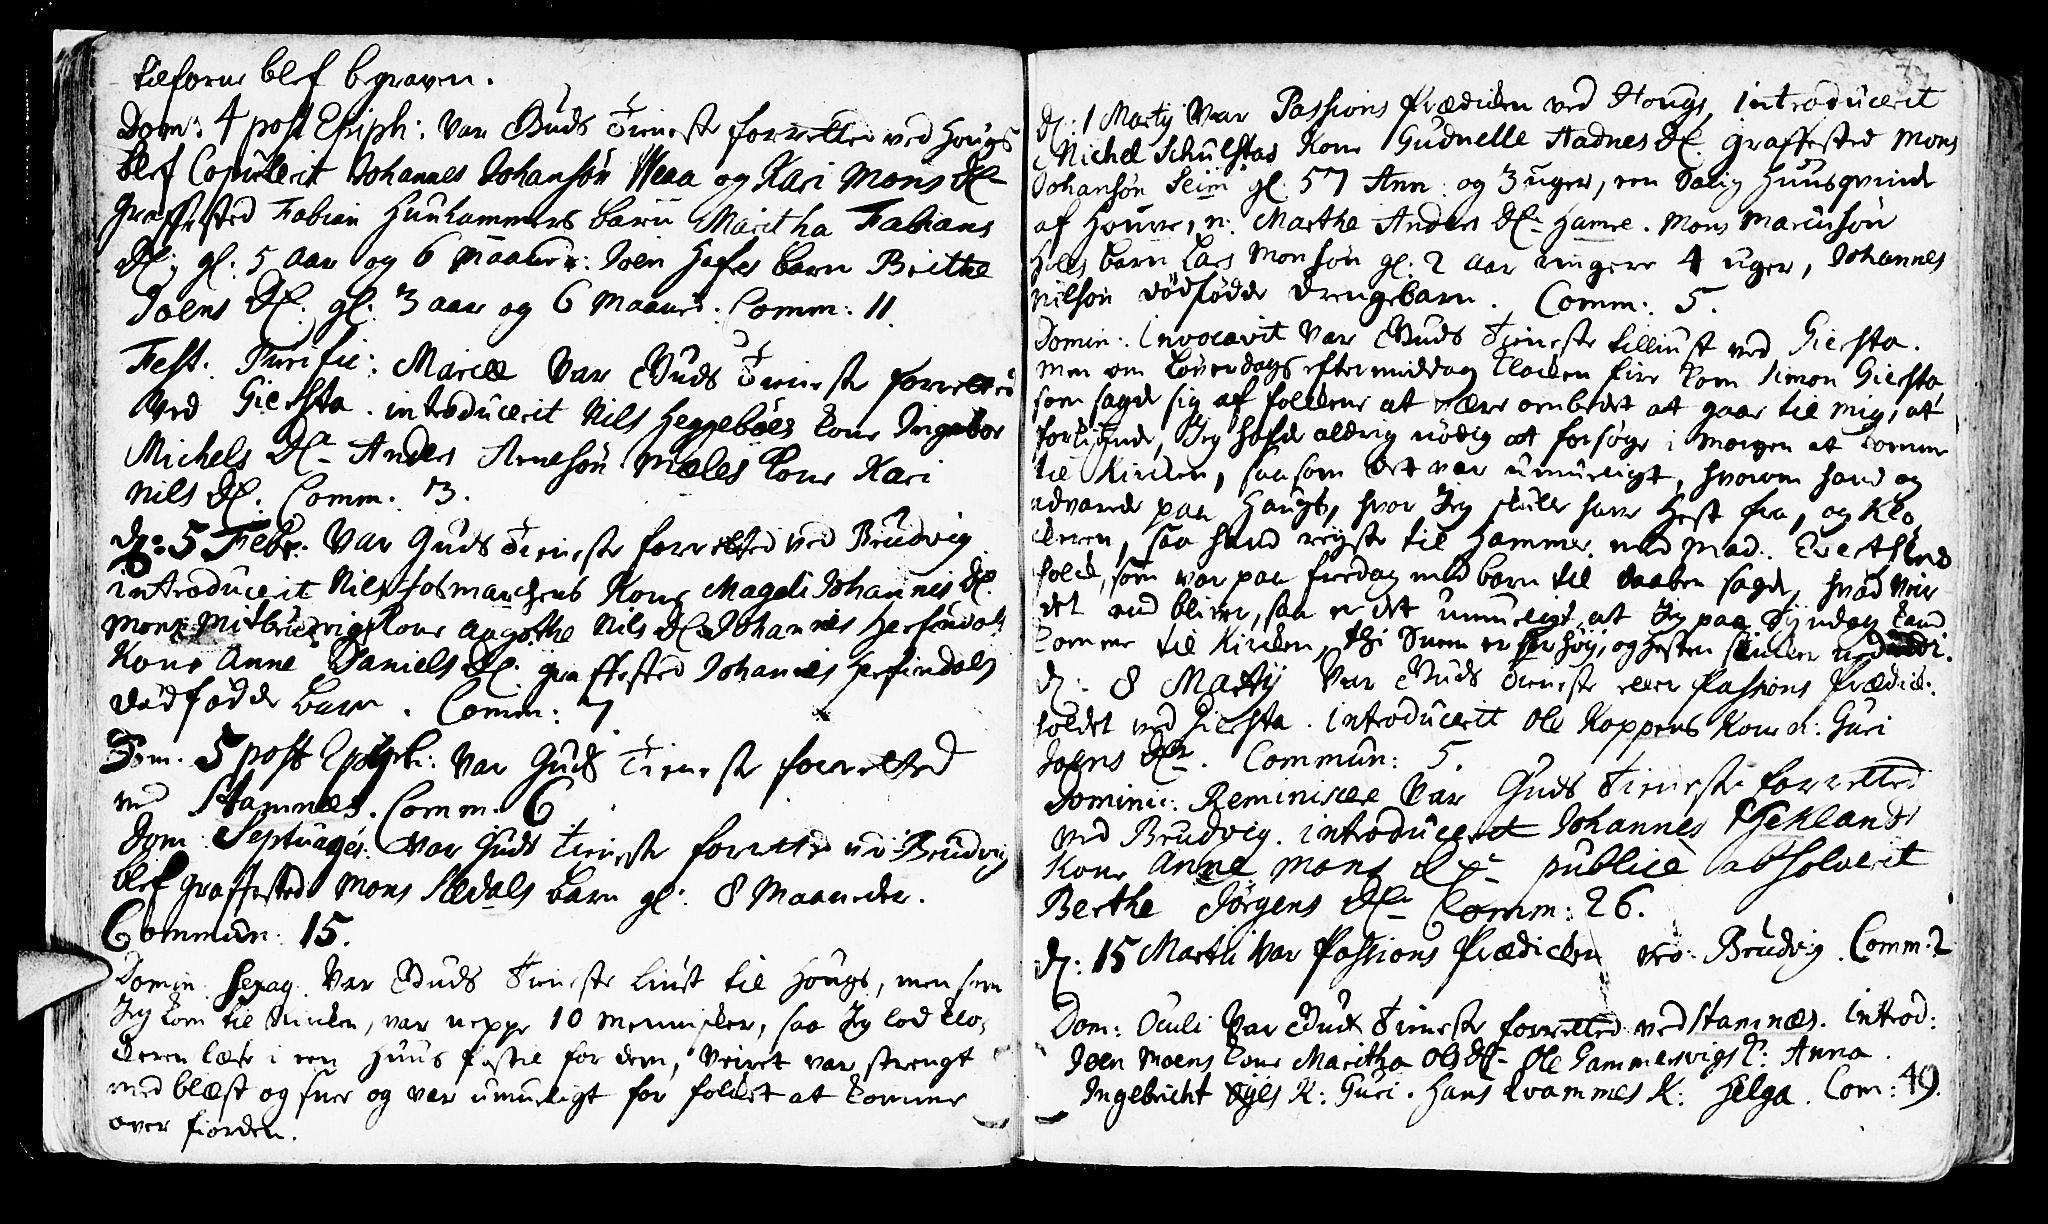 tilforne blef begraven.
Dom: 4 post Epiph: var Guds Tieneste forrettet ved Hougs
blef Copulerit Johannes Johansøn Weaa og Kari Mons Dr
Graffested Fabian Hunhammers barn Maritha Fabians
Dr: gl: 5 aar og 6 maaner: Joen Hofes barn Brithe
Joens Dr: gl: 3 aar og 6 maaner: Comm: 11.
Fest. Purific: Mariæ var Guds Tieneste forrettet
ved Giersta. introducerit Nils Heggebøes kone Ingebor
Michels Dr Anders Arnesøn Mæles kone Kari
Nils Dr. Comm. 13.
D: 5 Febr: var Guds Tieneste forretted ved Brudvig
introducerit Nils Kone Magdli Johannis Dr.
Mons Mitbrudvigs kone Aagothe Nils Dr Johannes Herfindals
Kone Anne Daniels Dr. graffested Johannes Herfindals
dødfødde barn. Comm: 7
Dom. 5 post Epiph: var Guds Tieneste forretted
ved Stamnæs. Comm. 6
Dom Septuages: var Guds Tieneste forretted ved Brudvig
blef graffested Mons Sædals barn gl: 8 Maaneder.
Commun: 15.
Domin Sexag. var Guds Tieneste liust til Hougs, men som
Jeg kom til kirken, var neppe 10 mennisker, saa Jeg lod klo-
ckeren læse i een Huus Postil for dem, veiret var strengt
med blæst og snee og var umueligt for folket at komme
over fiorden.
D: 1 Martij var Passions Prædiken ved Hougs, introducerit
Michel Schulstas Kone Gudnelle Aadnes Dr. graffested Mons
Johansøn Seim gl: 57 Ann: og 3 uger, een Huusqvinde
af Houve, n: Marthe Anders Dr Hamre. Mons Marcusøn
Holes barn Lars Monsøn gl: 2 aar ringere 4 uger, Johannes
Nilsøn dødfødde drengebarn. Comm: 5.
Domin: Invocavit var Guds Tieneste tilliust ved Giersta.
men om Løverdags eftermiddag klocken fire kom Simon Giersta,
som sagde sig af folkene at være ombedet at gaae til mig, at
forkynde, Jeg hafde aldrig nødig at forsøge i morgen at komme
til Kirken, saasom det var umueligt, hvorom hand og
advarede paa Hougs, hvor Jeg skulle have Hest fra, og Klo-
ckeren, saa hand reyste til Hammer med Mad.
folck, som var paa fredag med barn til daaben sagde, hvad veir
det end bliver, saa er det umueligt, at Jeg paa Syndag kand
komme til Kirken, thi Sneen er for høy, og hesten
D: 8 Martij var Guds Tieneste eller Passions Prædik:
holdet ved Giersta. introducerit Ole Koppens Kone n: Guri
Joens Dr. Commun: 5.
Dominic: Reminiscere var Guds Tieneste forretted
ved Brudvig. introducerit Johannes Kone
Anne Mons Dr publice absolverit
Berthe Jørgens Dr Comm: 26.
D: 15 Martii var Passions Prædicken ved Brudvig. Comm: 2
Dom: Oculi var Guds Tieneste forretted ved Stamnæs. Introd:
Joen Moens kone Maritha Ols Dr Ole Hammersvigs k: Anna.
Ingebricht K: Guri. Hans Kvammes K: Helga. Com: 49.